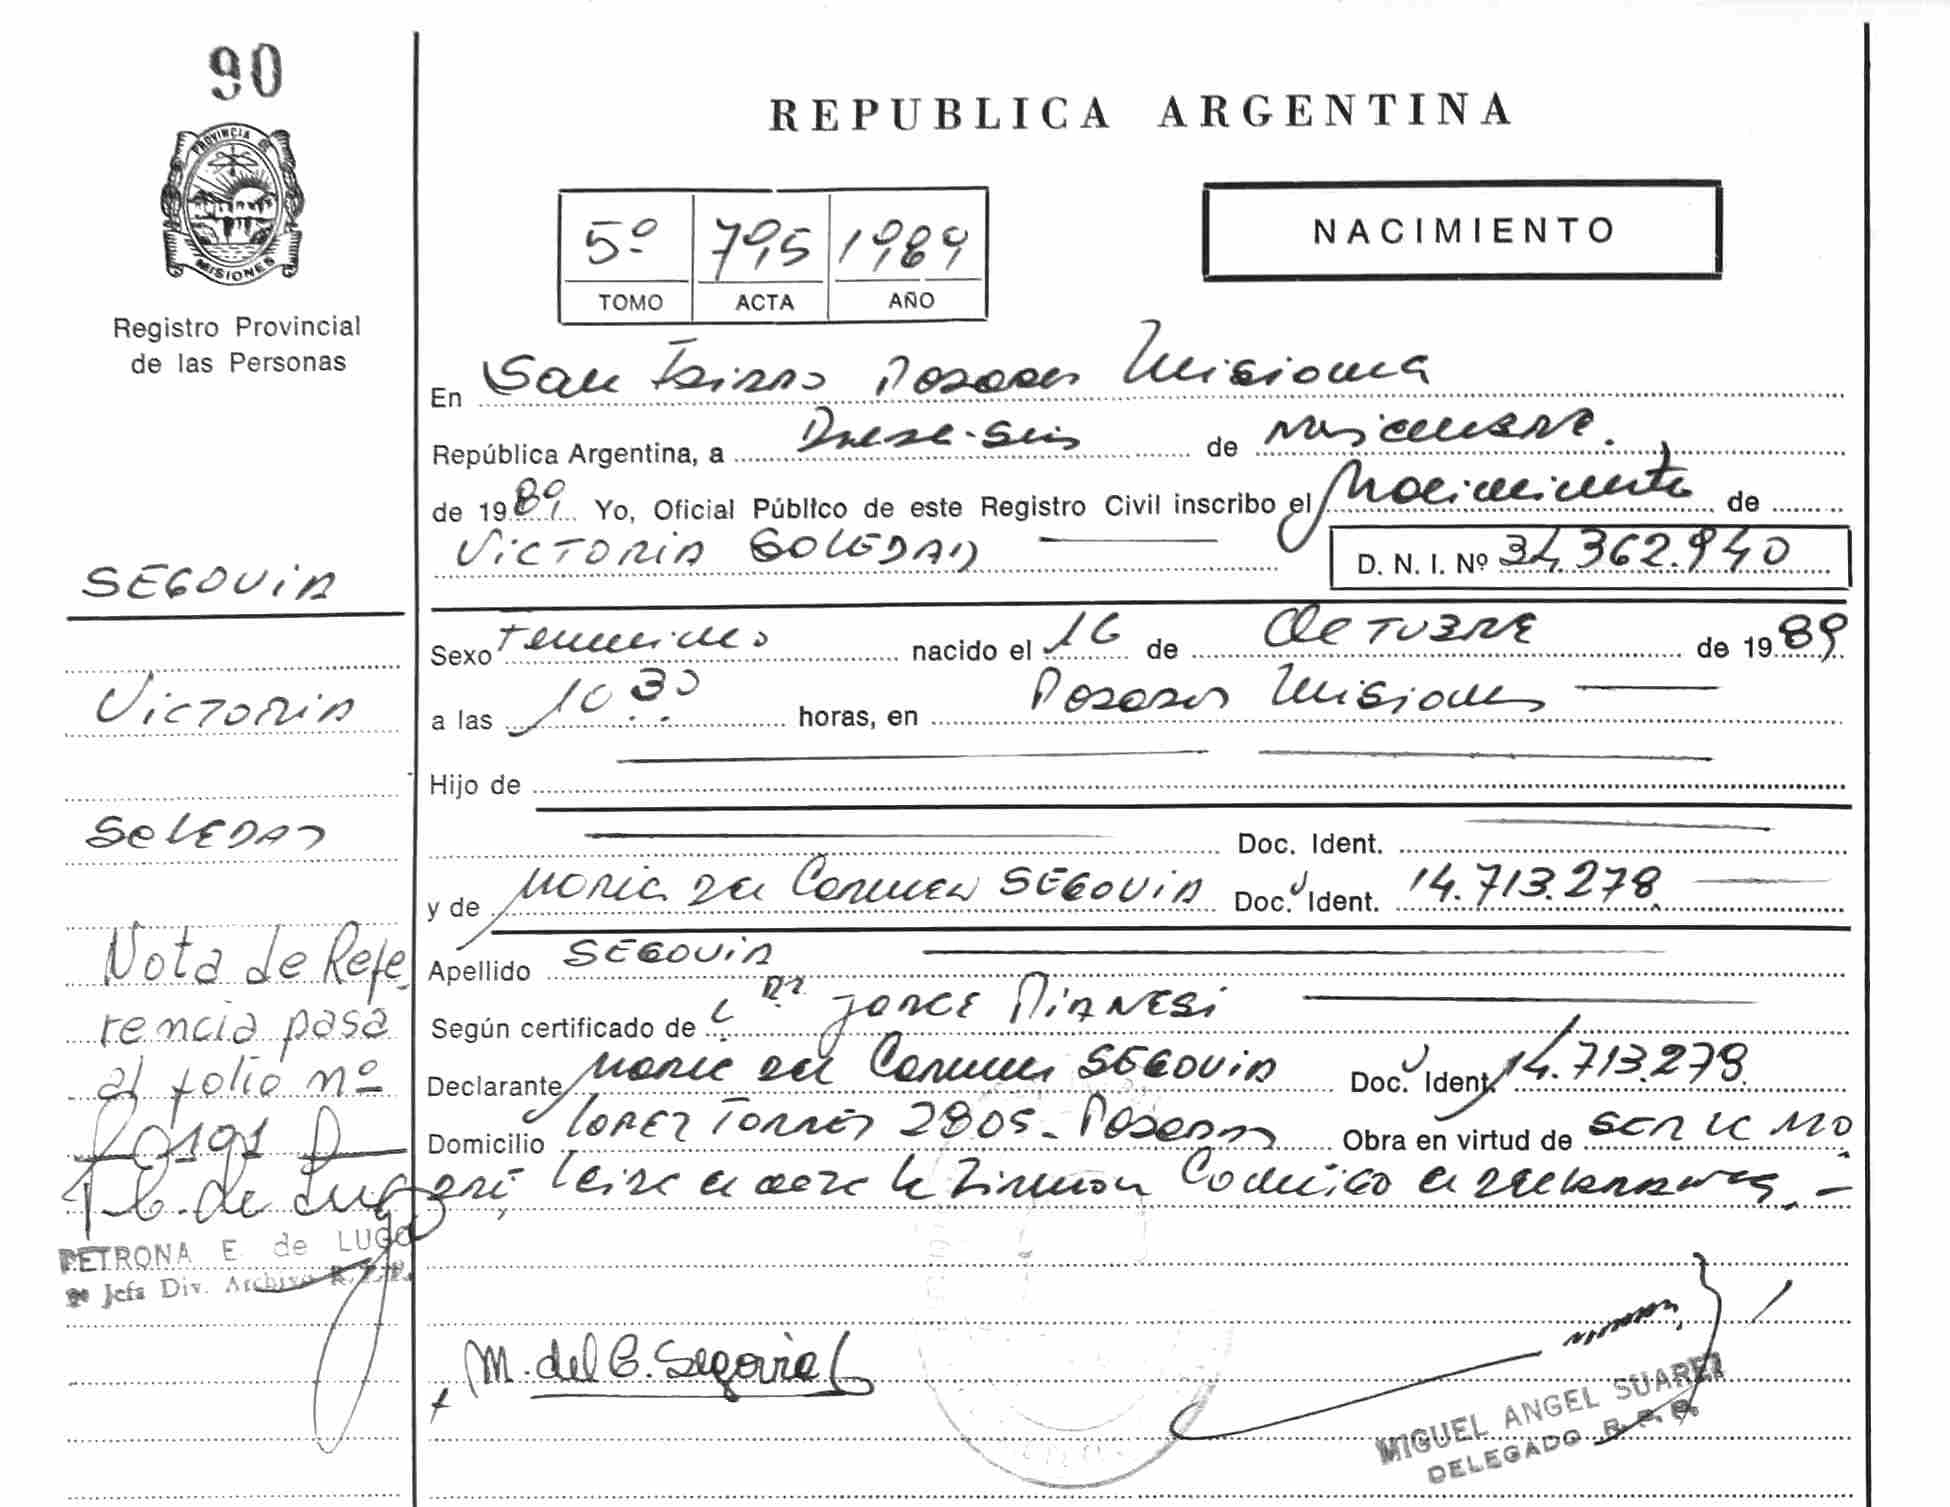 90
PROVINCIA DE
MISIONES
Registro Provincial
de las Personas
REPUBLICA ARGENTINA
5º 795 1989
TOMO ACTA AÑO
NACIMIENTO
En San Isidro Posadas Misiones
República Argentina, a de
de 1989 Yo, Oficial Público de este Registro Civil inscribo el Nacimiento de
VICTORIA SOLEDAD
D. N. I. Nº 34.362.940
Sexo Femenino nacido el 16 de OCTUBRE de 1989
a las 10 30 horas, en Posadas Misiones
Hijo de
Doc. Ident.
y de Maria del Carmen SEGOVIA Doc. Ident. 14.713.278
Apellido SEGOVIA
Según certificado de JORGE PIANESI
Declarante Maria del Carmen SEGOVIA Doc. Ident. 14.713.278
Domicilio LOPEZ TORRES 2905 - Posadas Obra en virtud de
Leida el acta la firman Conmigo el declarante. -
SEGOVIA
VICTORIA
SOLEDAD
Nota de Refe
rencia pasa
al folio nº
P. E. de Lugo
PETRONA E. de LUGO
Jefa Div. Archivo R.P.P.
M. del C. Segovia
MIGUEL ANGEL SUAREZ
DELEGADO R. P. P.